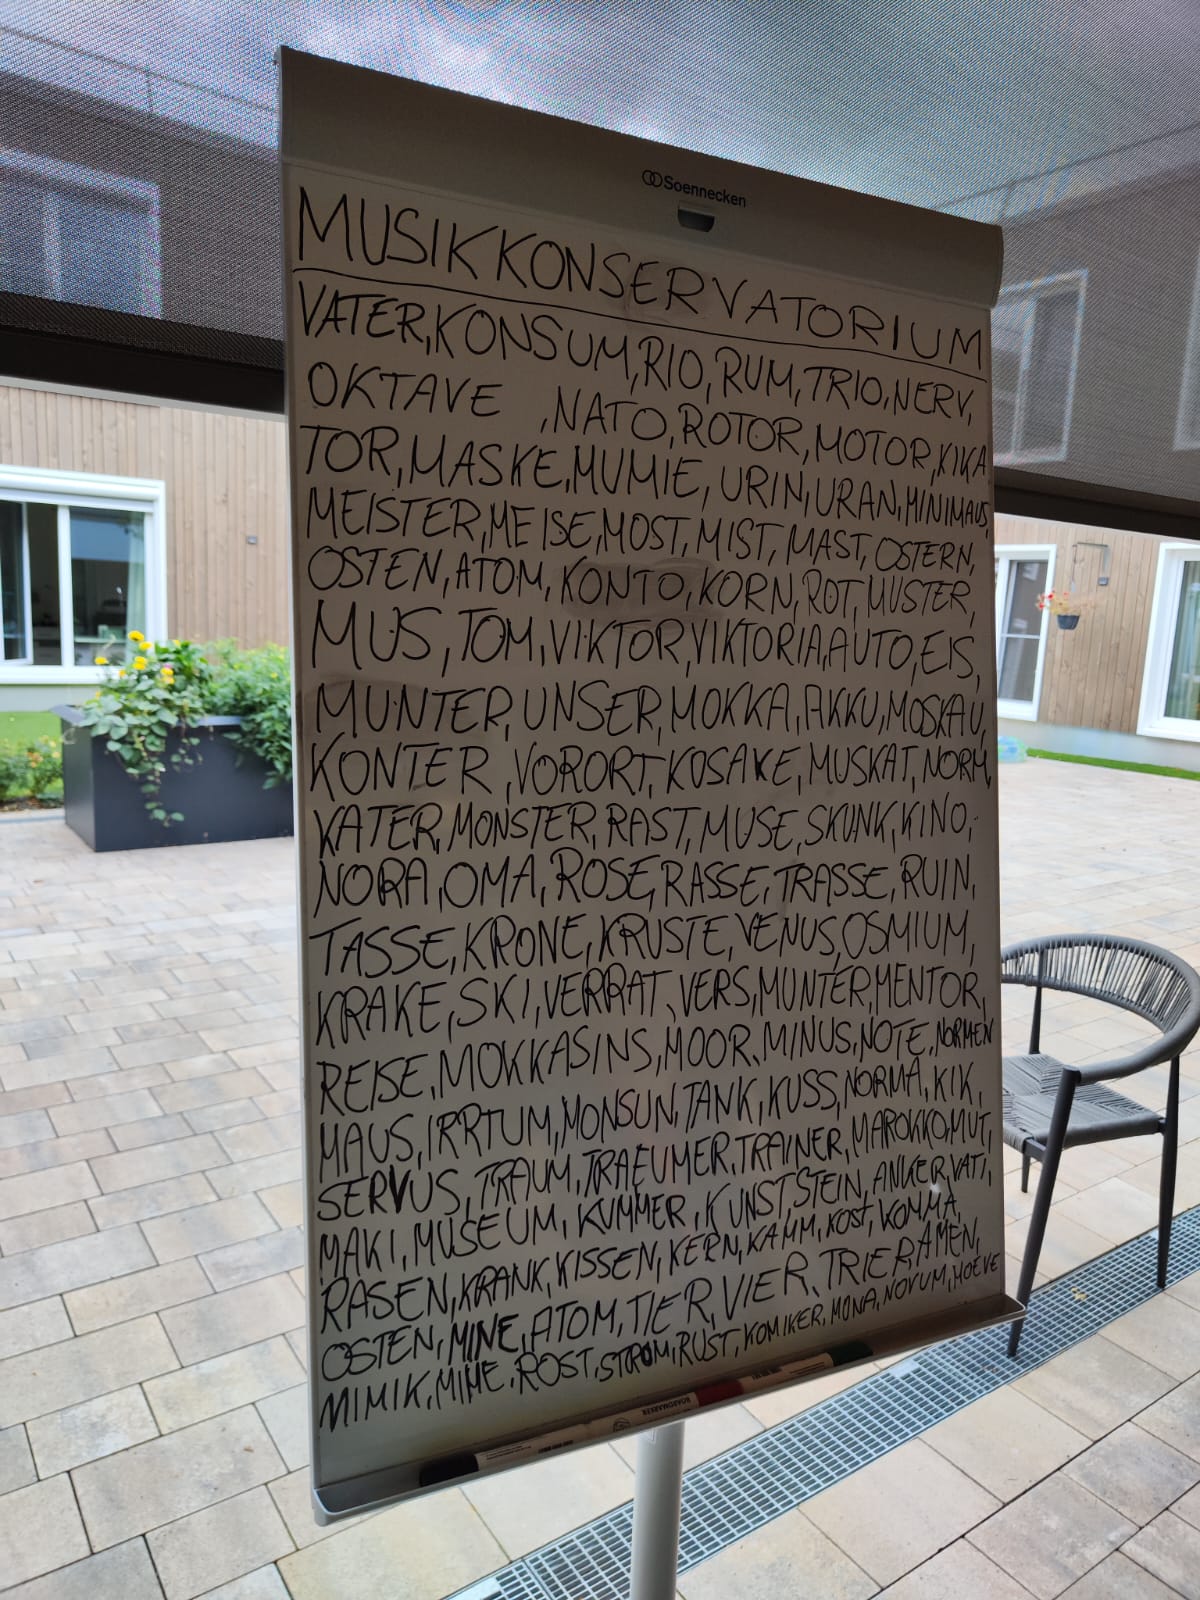 Soennecken
MUSIKKONSERVATORIUM
VATER, KONSUM, RIO, RUM, TRIO, NERV,
OKTAVE , NATO, ROTOR, MOTOR, KIKA
TOR, MASKE, MUMIE, URIN, URAN, MINIMAUS,
MEISTER, MEISE, MOST, MIST, MAST, OSTERN,
OSTEN, ATOM, KONTO, KORN, ROT, MUSTER,
MUS, TOM, VIKTOR, VIKTORIA, AUTO, EIS,
MUNTER, UNSER, MOKKA, AKKU, MOSKAU,
KONTER, VORORT, KOSAKE, MUSKAT, NORM,
KATER, MONSTER, RAST, MUSE, SKUNK, KINO,
NORA, OMA, ROSE, RASSE, TRASSE, RUIN,
TASSE, KRONE, KRUSTE, VENUS, OSMIUM,
KRAKE, SKI, VERRAT, VERS, MUNTER, MENTOR,
REISE, MOKKASINS, MOOR, MINUS, NOTE, NORMEN
MAUS, IRRTUM, MONSUN, TANK, KUSS, NORMA, KIK,
SERVUS, TRAUM, TRAEUMER, TRAINER, MAROKKO, MUT,
MAKI, MUSEUM, KUMMER, KUNST, STEIN, ANKER, VATI,
RASEN, KRANK, KISSEN, KERN, KAMM, KOST, KOMMA,
OSTEN, MINE, ATOM, TIER, VIER, TRIER, AMEN,
MIMIK, MIME, ROST, STROM, RUST, KOMIKER, MONA, NOVUM, MOEVE
BOARDMARKER